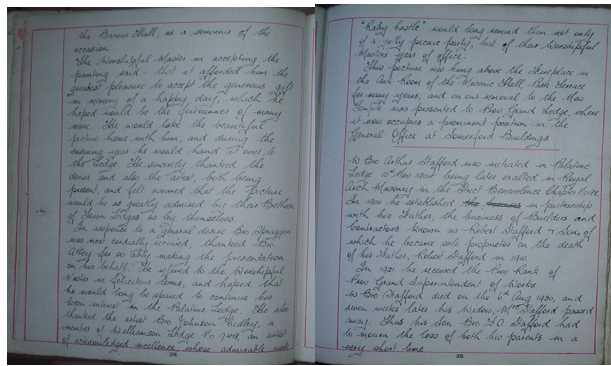 the Barons Hall, as a souvenir of the
occasion.
The Worshipful Master in accepting the
painting said – that it afforded him the
greatest pleasure to accept the generous gift
in memory of a happy day, which he
hoped would be the forerunner of many
more. He would take the beautiful
picture home with him and during the
ensuing year he would hand it over to
the Lodge. He sincerely thanked the
donor and also the artist, both being
present, and felt assured that the picture
would be as greatly admired by their Brethren
of Town Lodges as by themselves.
In response to a general desire Bro Spraggon
was most cordially received, thanked Bro
for so ably making the presentation
on his behalf. He referred to the Worshipful
Master in felicitous terms, and hoped that
he would long be spared to continue his
keen interest in the Palatine Lodge. He also
thanked the artist Bro Johnson Hedley, a
member of Williamson Lodge No 949, an artist
of acknowledged excellence whose admirable work
58
"Raby Castle" would long remind them not only
of a very picnic party, but of their Worshipful
Masters year of office.
This picture was hung above the Fireplace in
the Ante Room of the Masonic Hall, Park Terrace
for many years, and on our removal to the New
Temple was presented to Prov Grand Lodge, where
it now occupies a prominent position in the
General Office at Somerford Buildings.
W Bro Arthur Stafford was initiated in Palatine
Lodge being later exalted in Royal
Arch Masonry in the Strict Benevolence Chapter No 97.
In 1900 he established in partnership
with his Father, the business of Builders and
Contractors known as Robert Stafford & Sons of
which he became sole proprietor on the death
of his Father, Robert Stafford in 1910.
In 1921 he received the Prov Rank of
Prov Grand Superintendent of Works
W Bro Stafford died on the 6th Aug 1930, and
seven weeks later his Widow, Mrs Stafford passed
away. Thus his Son Bro Stafford had
to mourn the loss of both his parents in a
very short time